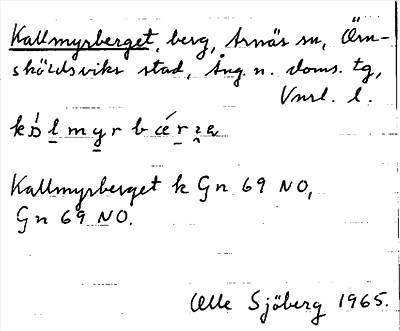 Kallmyrberget, berg, Arnäs sn, Örn-
sköldsviks stad, Ång. n. doms. tg,
Vnrl. l.
Kallmyrberget k Gn 69 NO,
Gn 69 NO.
Olle Sjöberg 1965.